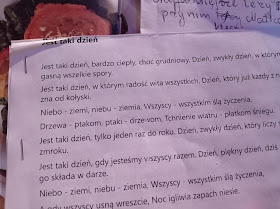 Jest taki dzień
Jest taki dzień, bardzo ciepły, choć grudniowy, Dzień, zwykły dzień, w którym
gasną wszelkie spory.
Jest taki dzień, w którym radość wita wszystkich, Dzień, który już każdy z n
zna od kołyski.
Niebo - ziemi, niebu - ziemia, Wszyscy - wszystkim ślą życzenia,
Drzewa - ptakom, ptaki - drze-wom, Tchnienie wiatru - płatkom śniegu.
Jest taki dzień, tylko jeden raz do roku, Dzień, zwykły dzień, który liczy
zmroku.
Jest taki dzień, gdy jesteśmy wszyscy razem, Dzień, piękny dzień, dziś
go składa w darze.
Niebo - ziemi, niebu - ziemia, Wszyscy - wszystkim ślą życzenia,
A gdy wszyscy usną wreszcie, Noc igliwia zapach niesie.